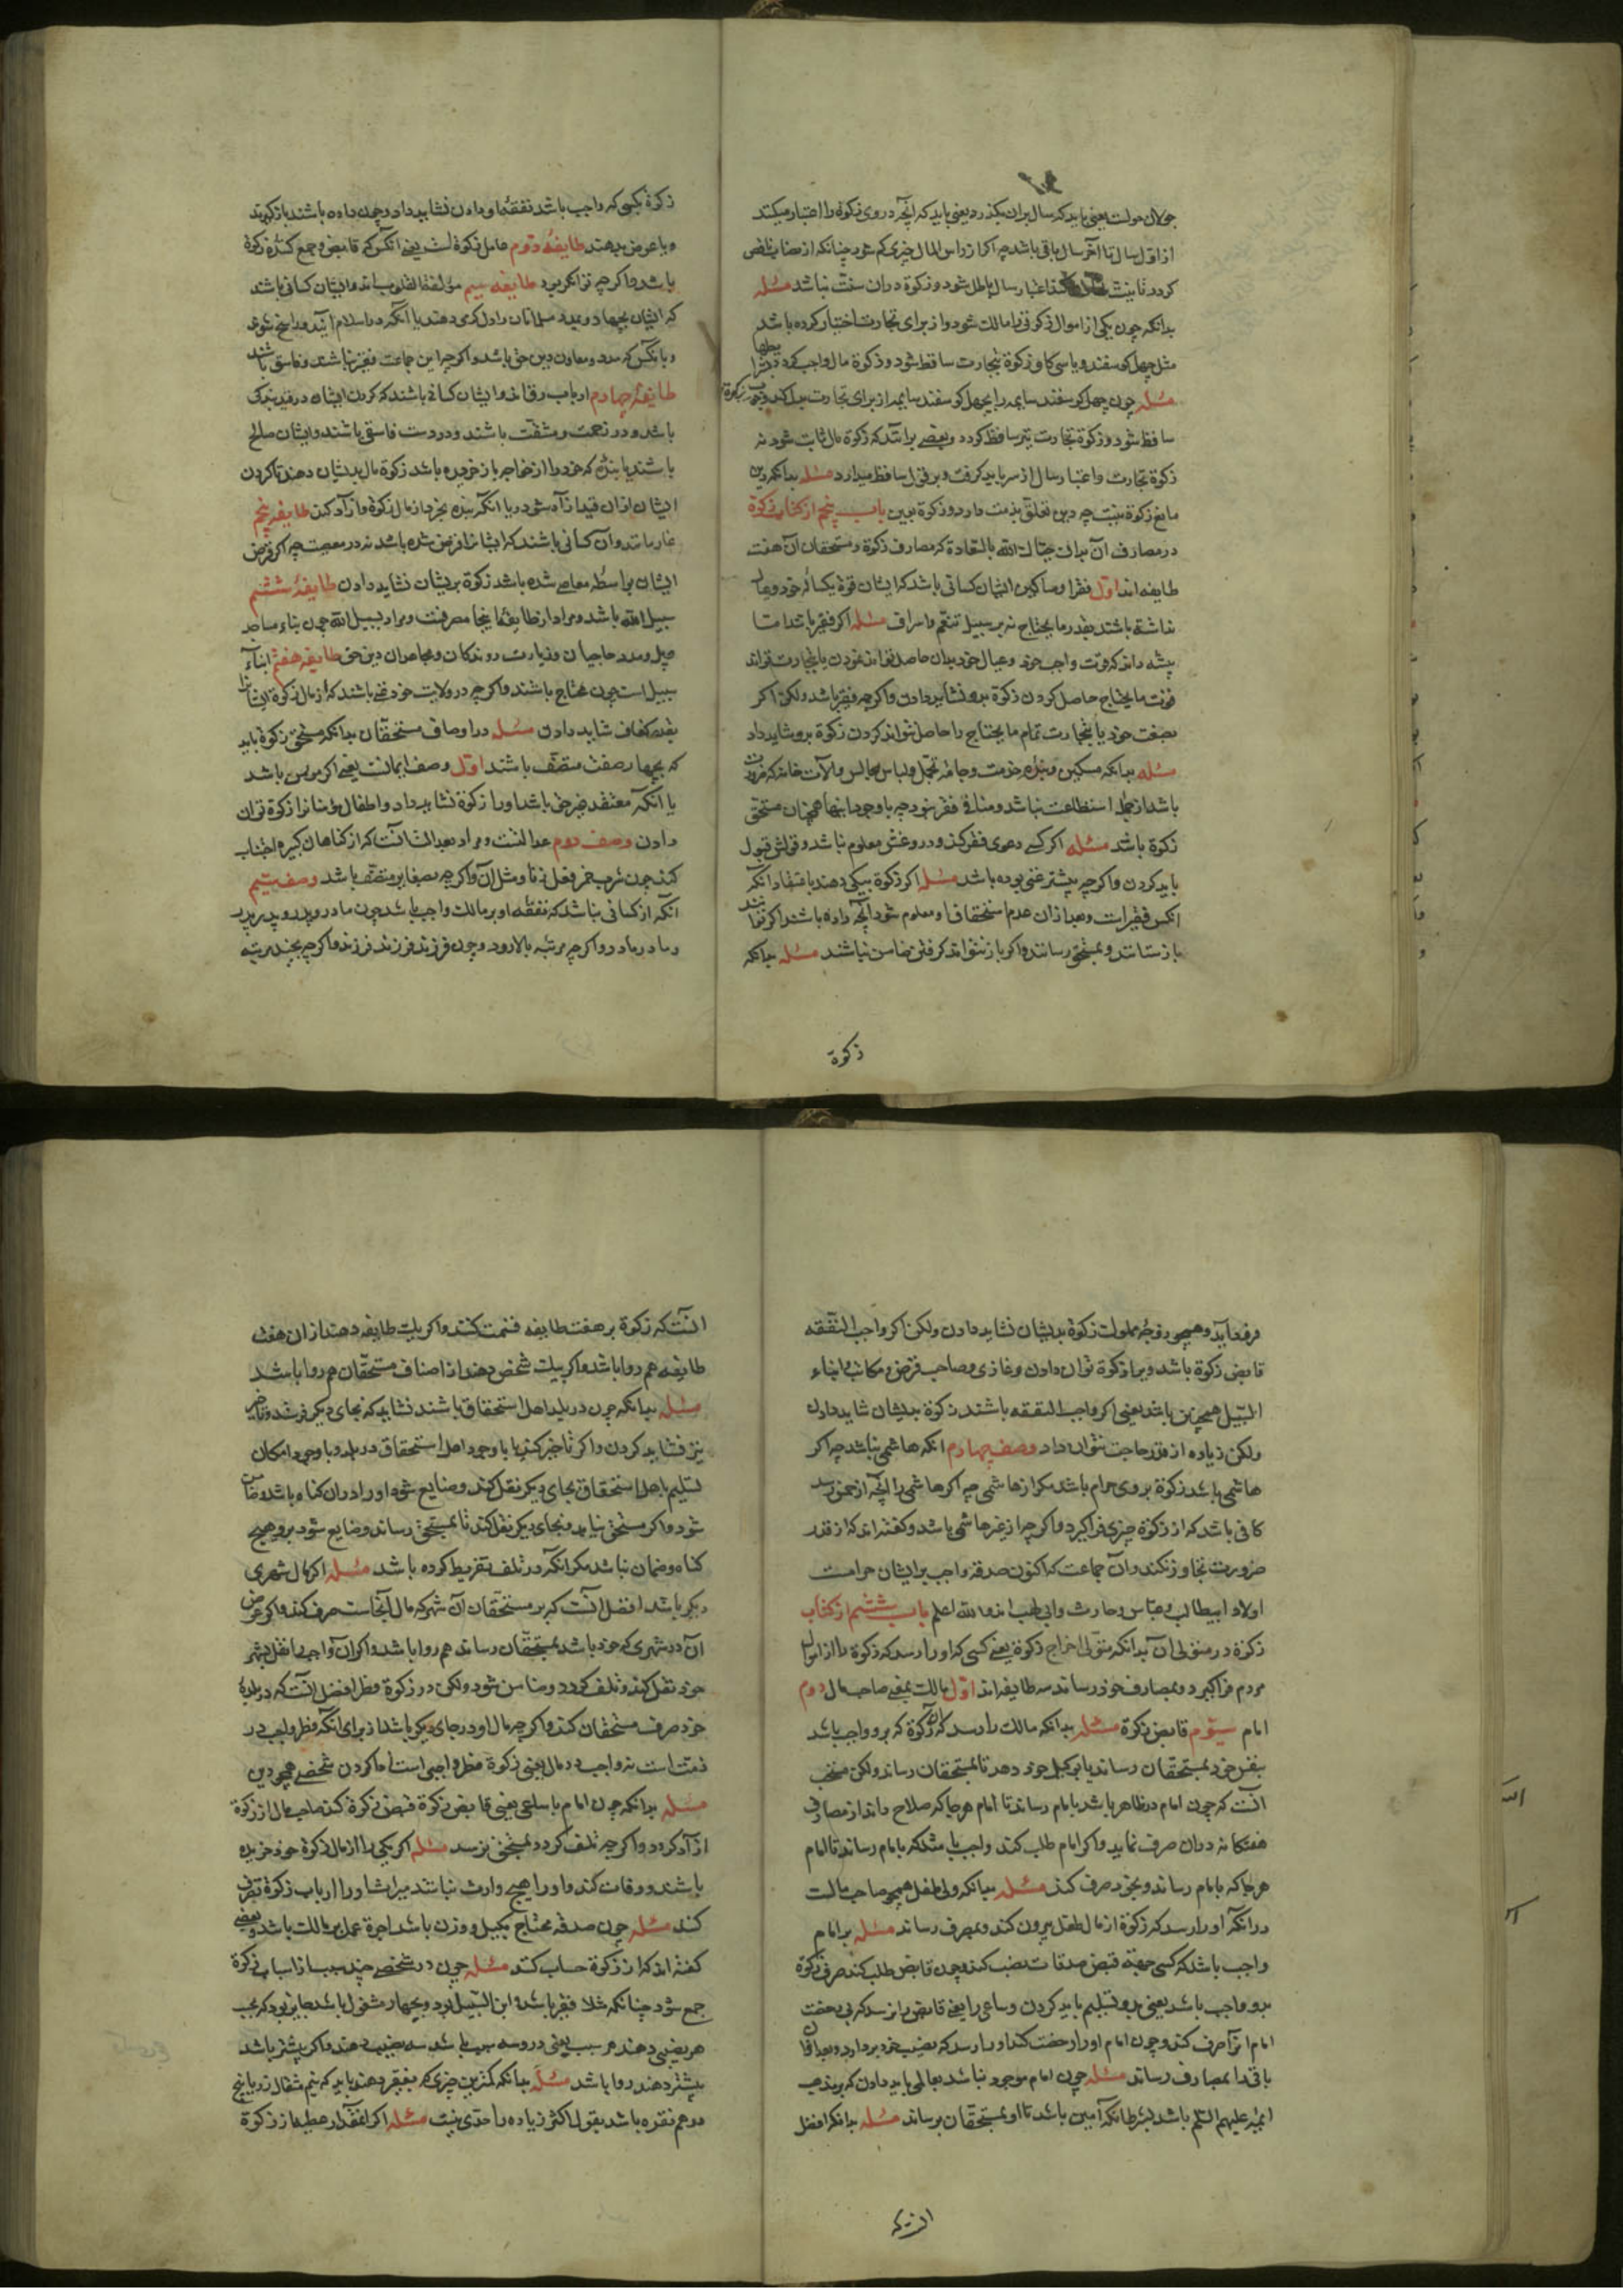 حولان حولست یعنی باید که سال بران بگذرد یعنی باید که آنچه در وی زکوة را اعتبار میکنند
از اول سال تا آخر سال باقی باشد چه اگر از راس المال چیزی کم شود چنانکه از نصاب ناقص
گردد تا بنیت اعتبار سال باطل شود و زکوة دران سنت نباشد مسئله
بدانکه چون یکی از اموال زکوتی را مالک شود و از برای تجارت اختیار کرده باشد
مثل چهل گوسفند و یا سی گاو زکوة تجارت ساقط شود و زکوة مال واجب گردد
مسئله چون چهل گوسفند سایمه را بچهل گوسفند سایمه از برای تجارت بدل کند
ساقط شود و زکوة تجارت نیز ساقط گردد و بعضی برانند که زکوة مال ثابت شود نه
زکوة تجارت و اعتبار سال از سر باید گرفت و برقی ساقط میدارد مسئله بدانکه دین
مانع زکوة نیست چه دین تعلق بذمت دارد و زکوة بعین باب پنجم از کتاب زکوة
در مصارف آن بدان حیاک الله بالسعادة که مصارف زکوة و مستحقان آن هفت
طایفه اند اول فقرا و مساکین ایشان کسانی باشد که ایشان قوة یکساله خود و عیال
نداشته باشند بقدر ما یحتاج نه بر سبیل تنعم و اسراف مسئله اگر فقیر باشد اما
پیشه داند که قوت واجب خود و عیال خود بدان حاصل تواند نمودن یا بتجارت تواند
قوت ما یحتاج حاصل کردن زکوة برو نشاید دادن و اگر چه فقیر باشد ولکن اگر
بصنعت خود یا بتجارت تمام ما یحتاج را حاصل نتواند کردن زکوة برو شاید داد
مسئله بدانکه مسکین و بنده خدمت و جامه تجمل و لباس مجالس و آلات خانه که
باشد از جمله استطاعت نباشد و منافی فقر نبود چه با وجود اینها همچنان مستحق
زکوة باشد مسئله اگر کسی دعوی فقر کند و دروغش معلوم نباشد و قولش قبول
باید کردن و اگر چه پیشتر غنی بوده باشد مسئله اگر زکوة بیکی دهند باعتقاد آنکه
آنکس فقیرست و بعد از ان عدم استحقاق او معلوم شود آنچه داده باشند اگر توانند
باز ستانند و بمستحق رسانند و اگر باز نتوانند گرفتن ضامن نباشند مسئله بدانکه
زکوة
زکوة بکسی که واجب باشد نفقه او دادن نشاید داد و چون داده باشند باز گیرند
و یا عوض بدهند طایفه دوم عامل زکوة است یعنی آنکس که قابض و جمع کننده زکوة
باشد و اگر چه توانگر بود طایفه سیم مؤلفة القلوب اند و ایشان کسانی باشند
که ایشان بجهاد و بمدد مسلمانان دل گرمی دهند یا آنکه در اسلام آیند و راسخ شوند
و یا آنکس که مدد و معاون دین حق باشد و اگر چه این جماعت فقیر نباشند و فاسق باشند
طایفه چهارم ارباب رقاند و ایشان کسانی باشند که گردن ایشان در قید بندگی
باشد و در زحمت و مشقت باشند و در دست فاسقی باشند و ایشان صالح
باشند یا بنده که خود را از خواجه باز خریده باشد زکوة مال بدیشان دهند تا گردن
ایشان از ان قید آزاد شود و یا آنکه بنده بخرد از مال زکوة و آزاد کند طایفه پنجم
غارمانند و آن کسانی باشند که ایشانرا قرض شده باشد نه در معصیت چه اگر قرض
ایشان بواسطه معاصی شده باشد زکوة بریشان نشاید دادن طایفه ششم
سبیل الله باشد و مراد از طایفه اینجا مصرفست و مراد بسبیل الله چون بناء مساجد
و پل و مدد حاجیان و زیارت روندگان و مجاهدان دین حق طایفه هفتم ابناء
سبیل است چون محتاج باشند و اگر چه در ولایت خود غنی باشند که از مال زکوة ایشانرا
بقدر کفاف شاید دادن مسئله در اوصاف مستحقان بدانکه مستحق زکوة باید
که بچهار صفت متصف باشند اول وصف ایمانست یعنی اگر مومن باشد
یا آنکه معتقد غیر حق باشد او را زکوة نشاید داد و اطفال مؤمنانرا زکوة توان
دادن وصف دوم عدالتست و مراد بعدالت آنست که از گناهان کبیره اجتناب
کند چون شرب خمر و فعل زنا و مثل آن و اگر چه بصغایر متصف باشد وصف سیم
آنکه از کسانی نباشد که نفقه او بر مالک واجب باشد چون مادر و پدر و پدر پدر
و مادر مادر و اگر چه مرتبه بالا رود و چون فرزند و فرزند فرزند و اگر چه بچند مرتبه
فروآید و همچو زوجه و مملوک زکوة بدیشان نشاید دادن ولکن اگر واجب النفقه
قابض زکوة باشد ویرا زکوة توان دادن و غازی و صاحب قرض و مکاتب و ابناء
السبیل همچنین باشد یعنی اگر واجب النفقه باشند زکوة بدیشان شاید دادن
ولکن زیاده از قدر حاجت نتوان داد وصف چهارم آنکه هاشمی نباشد چه اگر
هاشمی باشد زکوة بر وی حرام باشد مگر از هاشمی چه اگر هاشمی را آنچه از خمس رسد
کافی باشد که از زکوة چیزی فرا گیرد و اگر چه از غیر هاشمی باشد و گفته اند که از قدر
ضرورت تجاوز نکند و آن جماعت که اکنون صدقه واجب بر ایشان حرامست
اولاد ابیطالب و عباس و حارث و ابی لهب اند والله اعلم باب ششم از کتاب
زکوة در متولی آن بدانکه متولی اخراج زکوة یعنی کسی که او را رسد که زکوة را از اموال
مردم فرا گیرد و بمصارف خود رساند سه طایفه اند اول مالک یعنی صاحب مال دوم
امام سیوم قابض زکوة مسئله بدانکه مالک را رسد که آن زکوة که برو واجب باشد
بنفس خود بمستحقان رساند یا بوکیل خود دهد تا بمستحقان رساند ولکن مستحب
آنست که چون امام در ظاهر باشد بامام رساند تا امام هر جا که صلاح داند از مصارف
هفتگانه در ان صرف نماید و اگر امام طلب کند واجب باشد که بامام رساند تا امام
هر جا که بامام رساند و بخود صرف کند مسئله بدانکه ولی طفل همچو صاحب مالست
در آنکه او را رسد که زکوة از مال طفل بیرون کند و بمصرف رساند مسئله بر امام
واجب باشد که کسی جهة قبض صدقات نصب کند و چون قابض طلب کند صرف زکوة
بدو واجب باشد یعنی بدو تسلیم باید کردن و ساعی را یعنی قابض را نرسد که بی رخصت
امام آنرا صرف کند و چون امام او را رخصت کند او را رسد که نصیب خود بردارد و بعد از ان
باقی را بمصارف رساند مسئله چون امام موجود نباشد بعالمی باید دادن که بر مذهب
ایمه علیهم السلم باشد بشرط آنکه امین باشد تا او بمستحقان برساند مسئله بدانکه افضل
آنست که
آنست که زکوة بر هفت طایفه قسمت کنند و اگر بیک طایفه دهند از ان هفت
طایفه هم روا باشد و اگر بیک شخص دهند از اصناف مستحقان هم روا باشد
مسئله بدانکه چون در بلد اهل استحقاق باشند نشاید که بجای دیگر فرستند و تاخیر
نیز نشاید کردن و اگر تاخیر کند یا با وجود اهل استحقاق در بلد و با وجود امکان
تسلیم باهل استحقاق بجای دیگر نقل کند و ضایع شود او را دران گناه باشد و ضامن
شود و اگر مستحق نیابد و بجای دیگر نقل کند تا بمستحق رساند و ضایع شود برو هیچ
گناه و ضمان نباشد مگر آنکه در تلف تفریط کرده باشد مسئله اگر مال شهری
دیگر باشد افضل آنست که بر مستحقان آن شهر که مال آنجاست صرف کند و اگر عوض
آن در شهری که خود باشد بمستحقان رساند هم روا باشد و اگر آن واجب را نقل بشهر
خود نقل کند و تلف گردد ضامن شود ولکن در زکوة فطر افضل آنست که در بلد
خود صرف مستحقان کند و اگر چه مال او در جای دیگر باشد از برای آنکه فطر واجب در
ذمت است نه واجب در مال یعنی زکوة فطر واجبی است ادا کردن شخصی همچو دین
مسئله بدانکه چون امام یا ساعی یعنی قابض زکوة قبض زکوة کند صاحب مال از زکوة
آزاد گردد و اگر چه تلف گردد و بمستحق نرسد مسئله اگر یکی را از مال زکوة خود خریده
باشند و وفات کند و او را هیچ وارث نباشد میراث او را ارباب زکوة تصرف
کنند مسئله چون صدقه محتاج بکیل و وزن باشد اجرة عمل بر مالک باشد و بعضی
گفته اند که از زکوة حساب کند مسئله چون در شخصی چند سبب از اسباب زکوة
جمع شود چنانکه مثلا فقیر باشد و ابن السبیل بود و بجهاد مشغول باشد جایز بود که بسبب
هر نصیبی دهند هر سبب یعنی در وسه سبب باشد سه نصیب دهند و اگر بیشتر باشد
بیشتر دهند روا باشد مسئله بدانکه کمترین چیزی که بفقیر دهند باید که نیم مثقال زر یا پنج
درهم نقره باشد بقول اکثر زیاده را حدی نیست مسئله اگر آنمقدار عطیه از زکوة